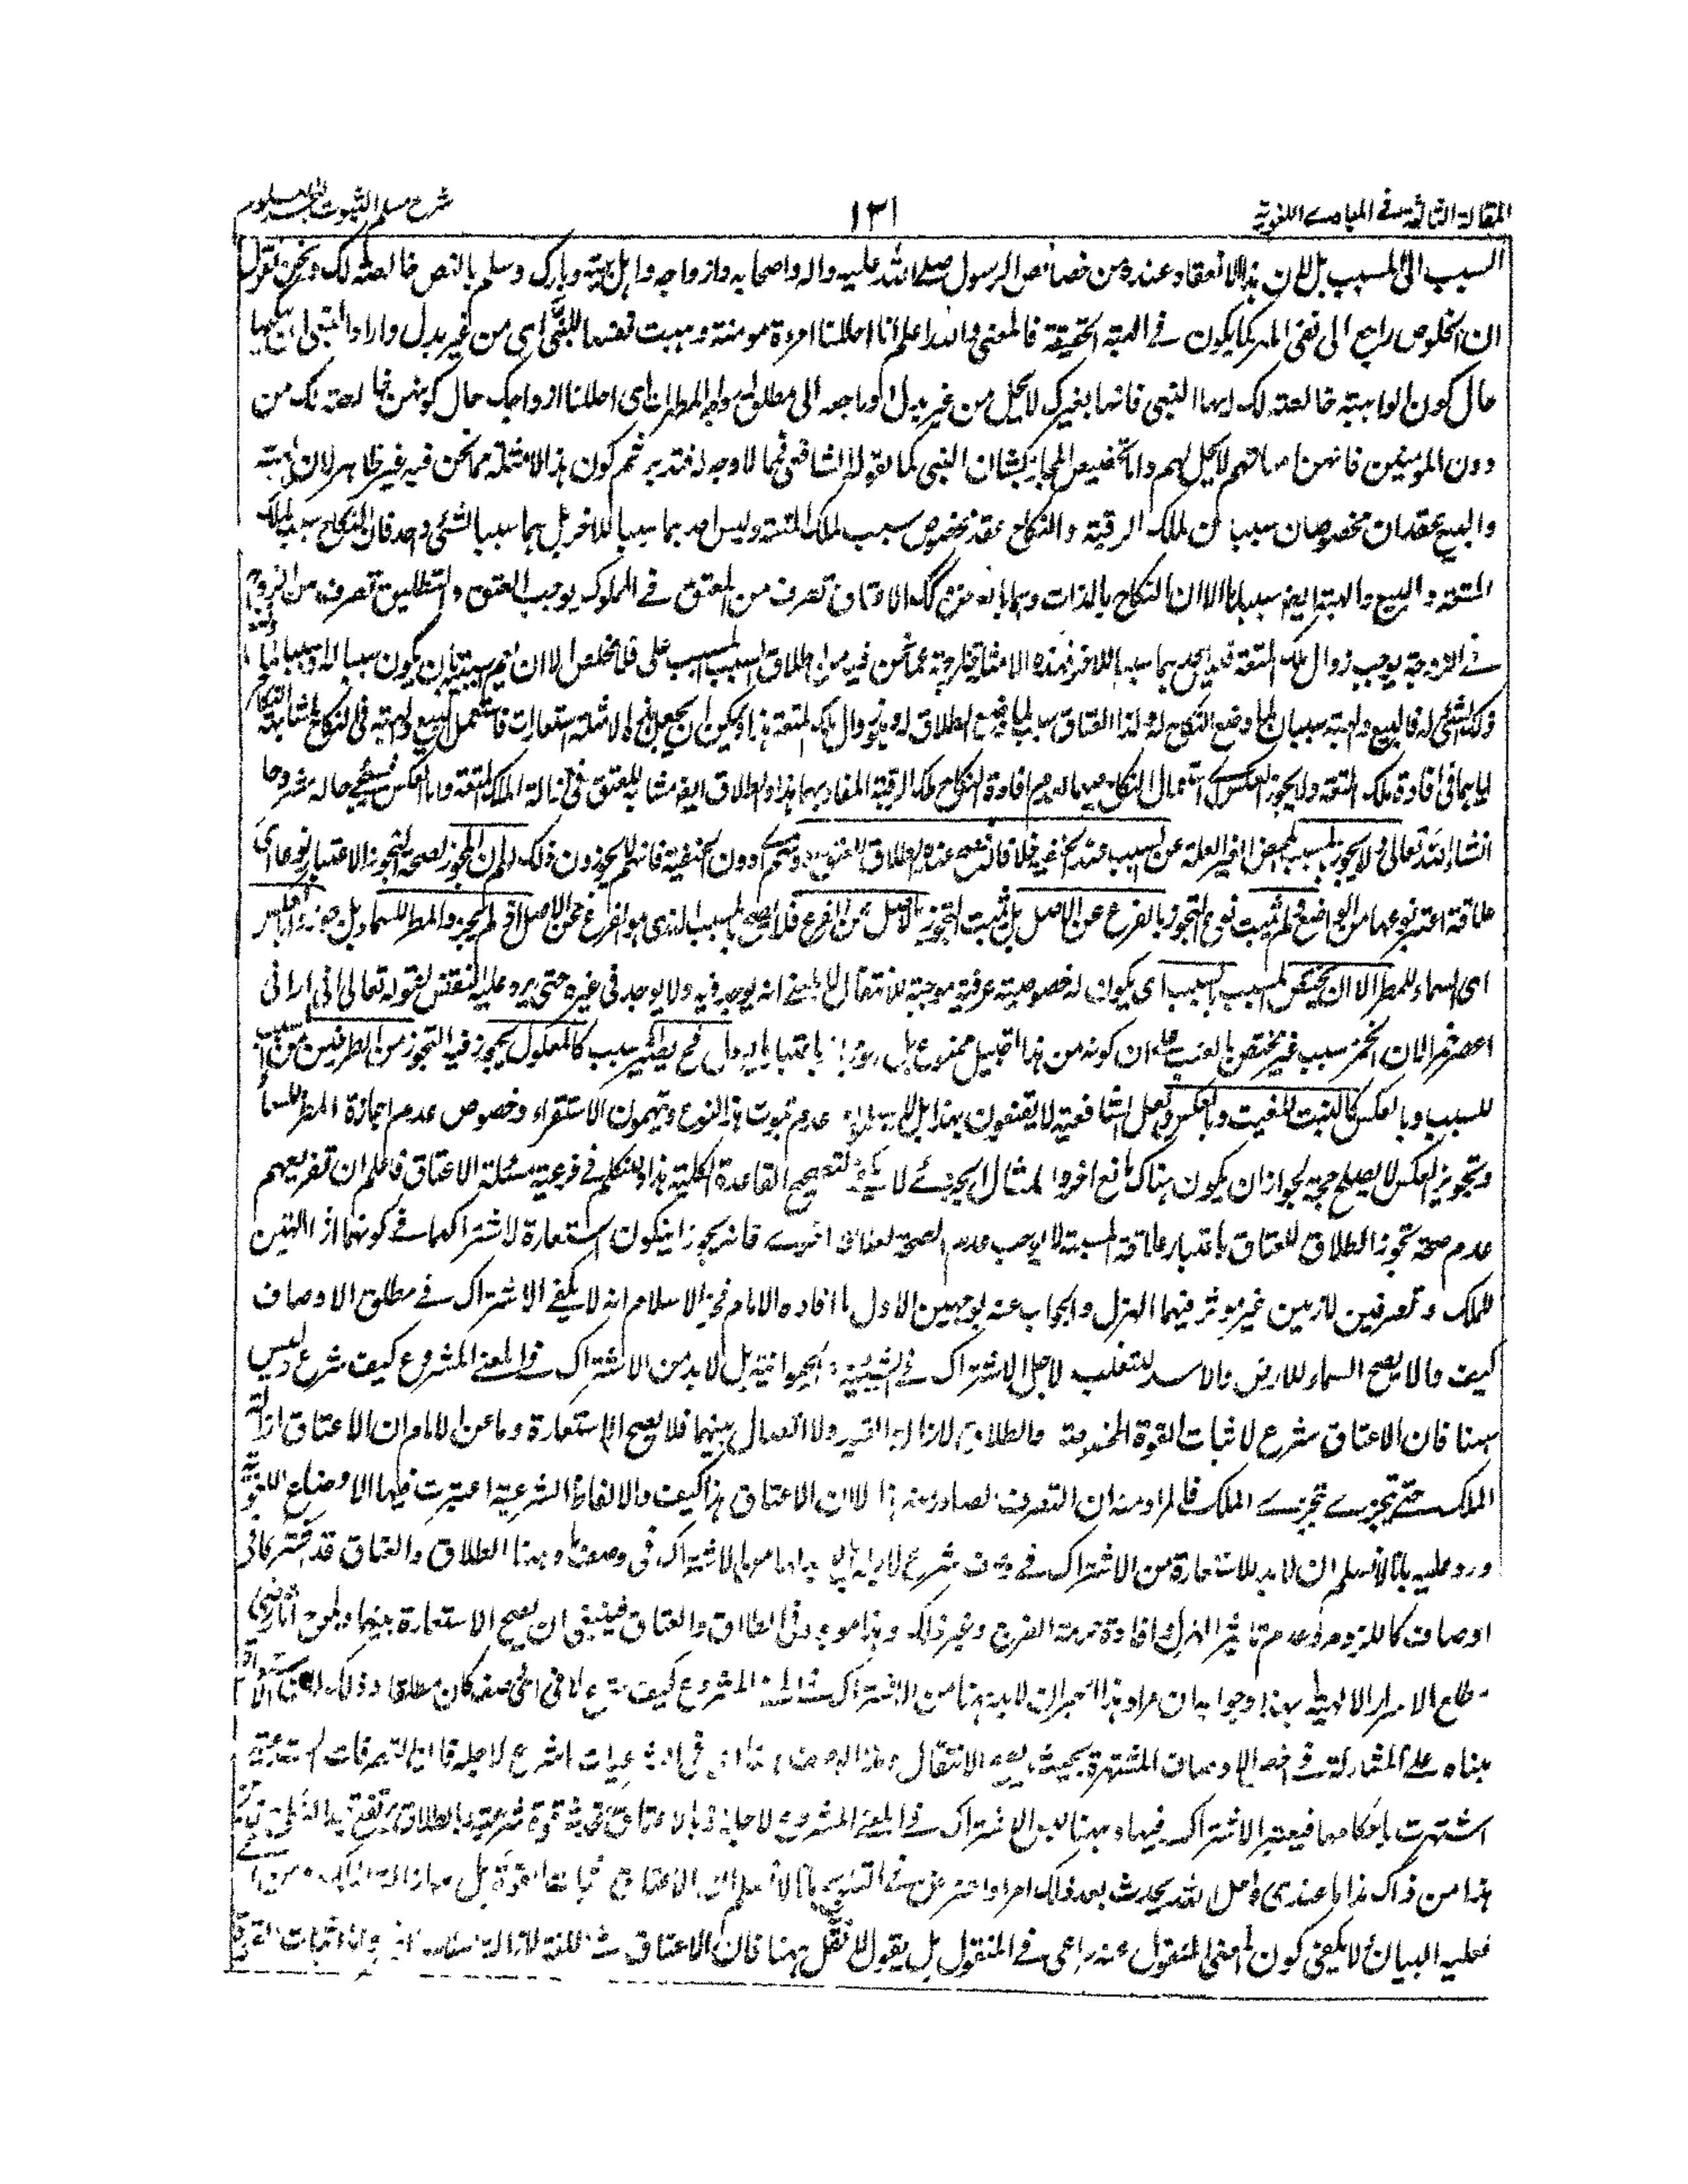 المقالة الثالثة في المبادي اللغوية
١٣١
شرح مسلم الثبوت لبحر العلوم
السبب الى المسبب بل لان هذا الانعقاد عنده من خصائص الرسول صلے الله عليه واله واصحابه وازواجه واهل بيته وبارك وسلم بالنص خالصة لك ونحن نقول
ان الخلوص راجع الى نفى المهر كما يكون فى الهبة الحقيقة فالمعنى والله اعلم انا احللنا امرءة مومنة وهبت نفسها للنبى اى من غير بدل واراد النبى ان ينكحها
حال كون الواهبة خالصة لك ايها النبى فانها بغيرك لا تحل من غير بدل او راجعة الى مطلق ازواجه المطهرات اى احللنا ازواجك حال كونهن خالصة لك من
دون المومنين فانهن امهاتهم لا تحل لهم واما تخصيص المجاز بشان النبى كما يقوله الشافعى فمما لا وجه له فتدبر ثم كون هذا الامثلة مما نحن فيه غير ظاهر لان الهبة
والبيع عقدان مخصوصان سببان لملك الرقبة والنكاح عقد مخصوص سبب لملك المتعة وليس احدهما سببا للاخر بل هما سببا لشئ واحد فان النكاح سبب لملك
المتعة والبيع والهبة ايضا سببان لها الا ان النكاح بالذات وهما بالعرض وكذا الاعتاق تصرف من المعتق فى المملوك يوجب العتق والتطليق تصرف من الزوج
فى الزوجة يوجب زوال ملك المتعة فليس احدهما سببا للاخر فهذه الامثلة خارجة عما نحن فيه من اطلاق السبب على المسبب فلا مخلص الا ان يعمم السببية بان يكون سببا له او سببا لما
وضع ذلك الشئ له فالبيع والهبة سببان لما وضع النكاح له وكذا العتاق سبب لما وضع الطلاق له وهو زوال ملك المتعة هذا ويمكن ان يجعل هذه الامثلة استعارات فاستعمل البيع والهبة فى النكاح لمشابهة النكاح
اياهما فى افادة ملك المتعة ولا يجوز العكس اى استعمال النكاح فيهما لعدم افادة النكاح ملك الرقبة المفاد بهما هذا والطلاق ايضا مشابه للعتق فى ازالة الملك المتعة واما العكس فسيجئ حاله مشروحا
انشاء الله تعالى ولا يجوز المسبب المحض اى غير العلة عن السبب عند الحنفية خلافا للشافعى فعنده يصح الطلاق للعتق دون الحنفية فانهم لا يجوزون ذلك لهم ان المجوز لصحة التجوز الاعتبار نوعا اى
علاقة اعتبر نوعها من الواضع ولم يثبت نوع التجوز بالفرع عن الاصل بل ثبت التجوز بالاصل عن الفرع فلا يصح بالمسبب الذى هو الفرع عن الاصل اذ لم يجوزوا المطر للسماء بل جوزوا بالعكس
اى السماء للمطر الا ان يختص المسبب بالسبب اى يكون له خصوصية عرفية موجبة للانتقال لا بمعنى انه يوجد فيه ولا يوجد فى غيره حتى يرد عليه النقض لقوله تعالى انى ارانى
اعصر خمرا لان الخمر سبب غير مختص بالعنب على ان كونه من هذا القبيل ممنوع بل هو باعتبار ما يؤل فحينئذ يصير السبب كالمعلول يجوز فيه التجوز من الطرفين من السبب
للسبب وبالعكس كالنبت للغيث وبالعكس ولعل الشافعية لا يقنعون بهذا بل عدم ثبوت هذا النوع ويتهمون الاستقراء وخصوص عدم اجازة المطر للسماء
وتجويز العكس لا يصلح حجة لجواز ان يكون هناك مانع اخر والمثال الجزئے لا يكفى لتصحيح القاعدة الكلية هذا ولنتكلم فى فرعية مسئلة الاعتاق فاعلم ان تفريعهم
عدم صحة تجوز الطلاق للعتاق باعتبار علاقة المسببية لا يوجب عدم الصحة لعلاقة اخرے فانه يجوز ان يكون استعارة لاشتراكهما فى كونهما ازالتين
للملك وتصرفين لازمين غير موثر فيهما الهزل والجواب عنه بوجهين الاول ما افاده الامام فخر الاسلام انه لا يكفى الاشتراك فے مطلق الاوصاف
كيف والا لصح السماء للارض والاسد للثعلب لاجل الاشتراك فى الشيئية والحيوانية بل لا بد من الاشتراك فے المعنى المشروع كيف شرع وليس
ههنا فان الاعتاق شرع لاثبات القوة المخصوصة والطلاق لازالة القيد ولا اتصال بينهما فلا يصح الاستعارة وما عن الامام ان الاعتاق ازالة
الملك حتى تجزے تجزے الملك فالمراد منه ان التصرف الصادر منه هذا لا ان الاعتاق هذا كيف والالفاظ الشرعية اعتبرت فيها الاوضاع اللغوية
ورد عليه بانا لا نسلم ان لا بد للاستعارة من الاشتراك فے وصف شرع لاجله بل الاشتراك فى وصف ما وهنا الطلاق والعتاق قد اشتركا فى
اوصاف كاللزوم وعدم تاثير الهزل وافادة حرمة الفرج وغير ذلك وهذا موجود فى الطلاق والعتاق فينبغى ان يصح الاستعارة بينهما
مطلع الاسرار الالهية بهذا وجوابه ان مراد هذا الحبر ان لا بد ههنا من الاشتراك فے المعنى المشروع كيف شرع لا فى اى صفة كان مطلقا وذلك لان
مبناه على المشاركة فى اخص الاوصاف المشتهرة بحيث يصح الانتقال شرع لاجله فان التصرفات الشرعية
اشتهرت باحكامها فيعتبر الاشتراك فيها وههنا ليس الاشتراك فے المعنى المشروع لاجله
هذا من ذاك هذا ما عندى ولعل الله يحدث بعد ذلك امرا واعترض فى التلويح بانا لا نسلم ان الاعتاق اثبات القوة بل هو ازالة الملك
فعليه البيان لا يكفى كون المعنى المنقول عنه راعى فے المنقول بل يقول لا نقل ههنا فان الاعتاق